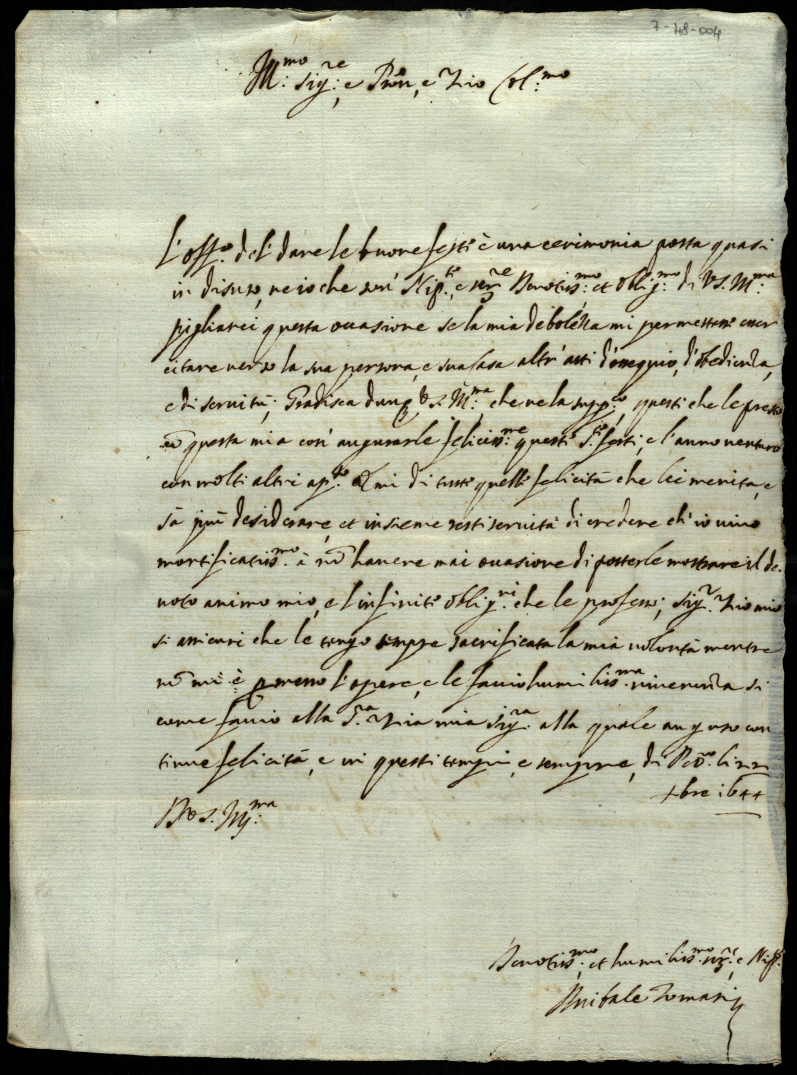 7-48-004
Ill.mo Sig.re e Pron, e Zio Col.mo
L'off.o del dare le buone feste è una cerimonia posta quasi
in disuso, ne io che son Nip.te, e ser.re Devotiss.mo et oblig.mo di V.S. Ill.ma
pigliarei questa occasione se la mia debolezza mi permettesse exer
citare verso la sua persona, e sua Casa altri atti d'ossequio, d'obedienza,
e di servitù; Gradisca dunq V.S. Ill.ma, che ne la supp.co, questi che le presto
cō questa mia con augurarle feliciss.me queste S.te feste, e l'anno venturo
con molti altri ap.so di tutte quelle felicità che lei merita, e
sà può desiderare, et insieme resti servita di credere ch'io vivo
mortificatiss.mo à nō havere mai occasione di poterle mostrare il de
voto animo mio, e l'infinite oblig.ni che le professo; Sig.r Zio mio
si assicuri che le tengo sempre sacrificata la mia volontà mentre
nō mi è permesso l'opere, e le faccio humiliss.ma riverenza si
come faccio alla S.ra Zia mia Sig.ra alla quale auguro con
tinue felicità, e in questi tempi, e sempre, di li 22
Xbre 1644
D V.S. Ill.ma
Devotiss.mo, et humiliss.mo ser.re e Nip.te
Anibale Tomasi